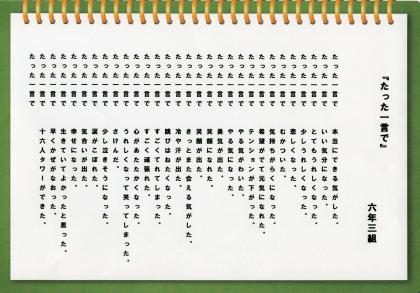 『たった一言で』
六年三組
たった一言で 本当にできる気がした。
たった一言で いい気分になった。
たった一言で とてもうれしくなった。
たった一言で 少しうれしくなった。
たった一言で 悲しくなった。
たった一言で むかついた。
たった一言で 気持ちがらくになった。
たった一言で 希望がもて元気になれた。
たった一言で テンションが下がった。
たった一言で やる気がわいた。
たった一言で やる気になった。
たった一言で 勇気が出た。
たった一言で 笑顔になれた。
たった一言で 笑顔が出た。
たった一言で きっとまた会える気がした。
たった一言で 冷や汗が出た。
たった一言で 跳びはねたくなった。
たった一言で すごくてれてしまった。
たった一言で すごく頑張れた。
たった一言で 心があたたかくなった。
たった一言で うれしくなって笑ってしまった。
たった一言で さけんだ。
たった一言で 少し泣きそうになった。
たった一言で 涙がこぼれた。
たった一言で 気合いが出た。
たった一言で 幸せになった。
たった一言で 生きていてよかったと思った。
たった一言で 早くかぜがなおった。
たった一言で 十六人タワーができた。